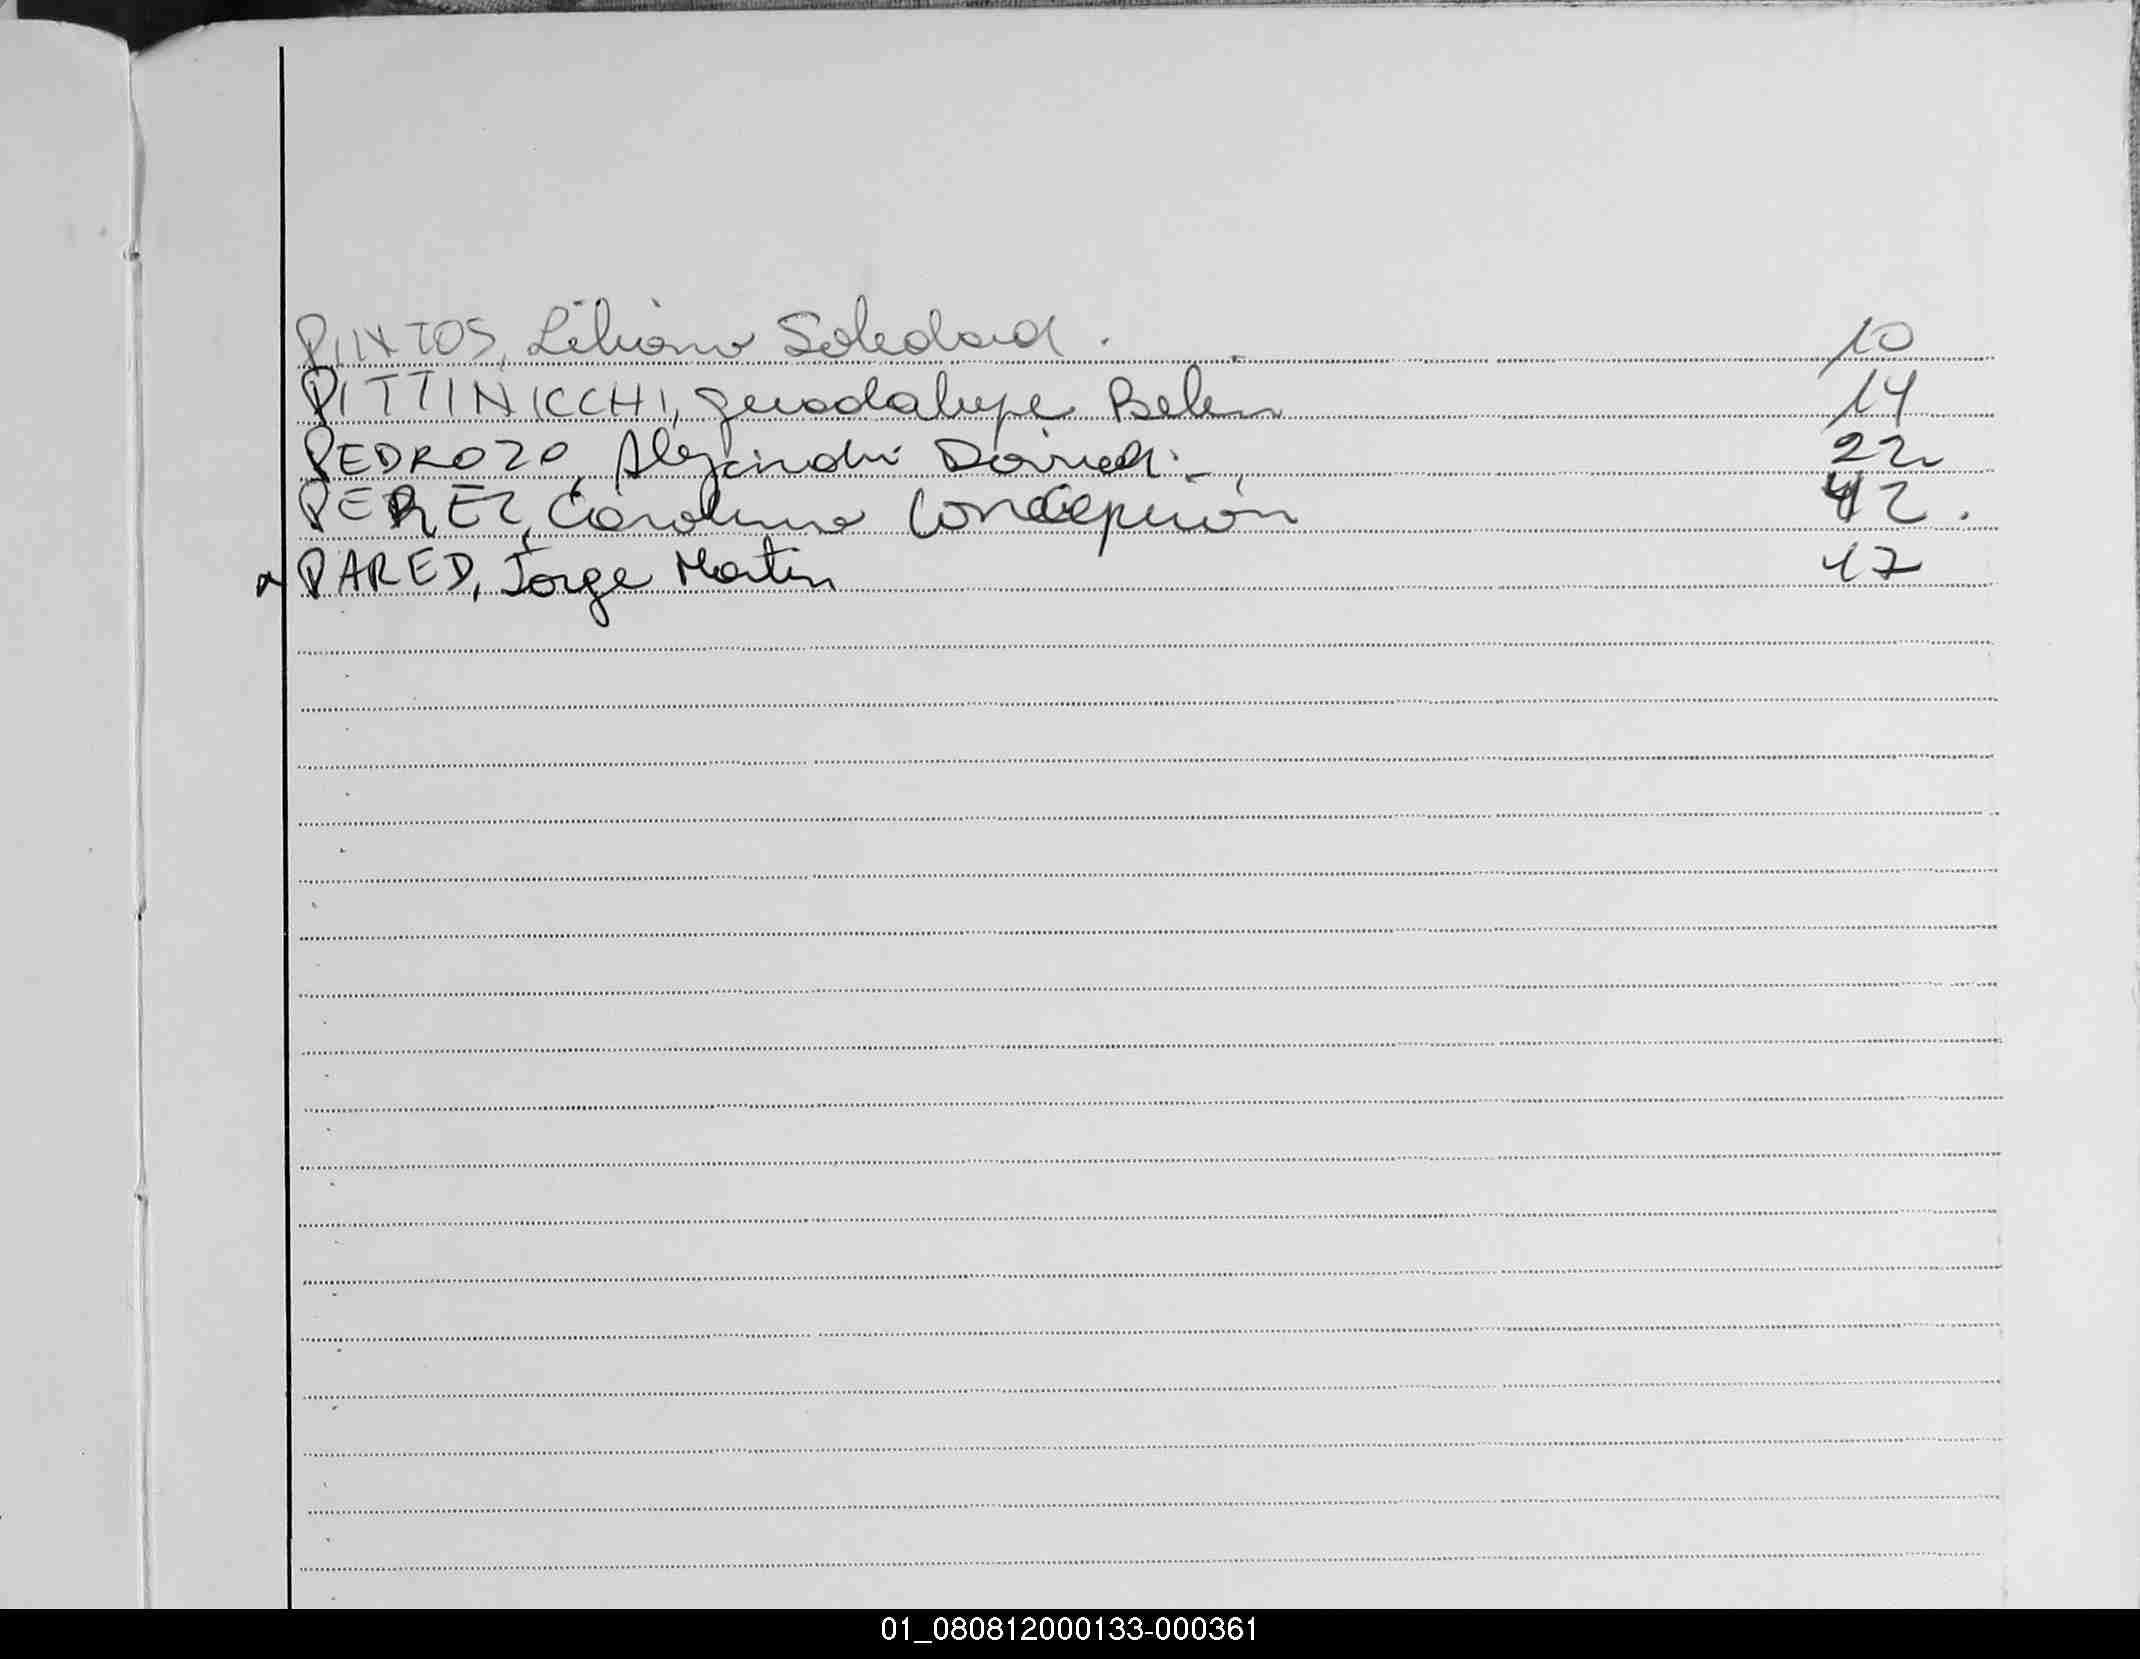 PINTOS, Liliana Soledad. 10
PITTINICCHI, Guadalupe Belen 14
PEDROZO, Alejandro David. 22
PEREZ, Carolina Concepción 42.
PARED, Jorge Martin 17
01_080812000133-000361